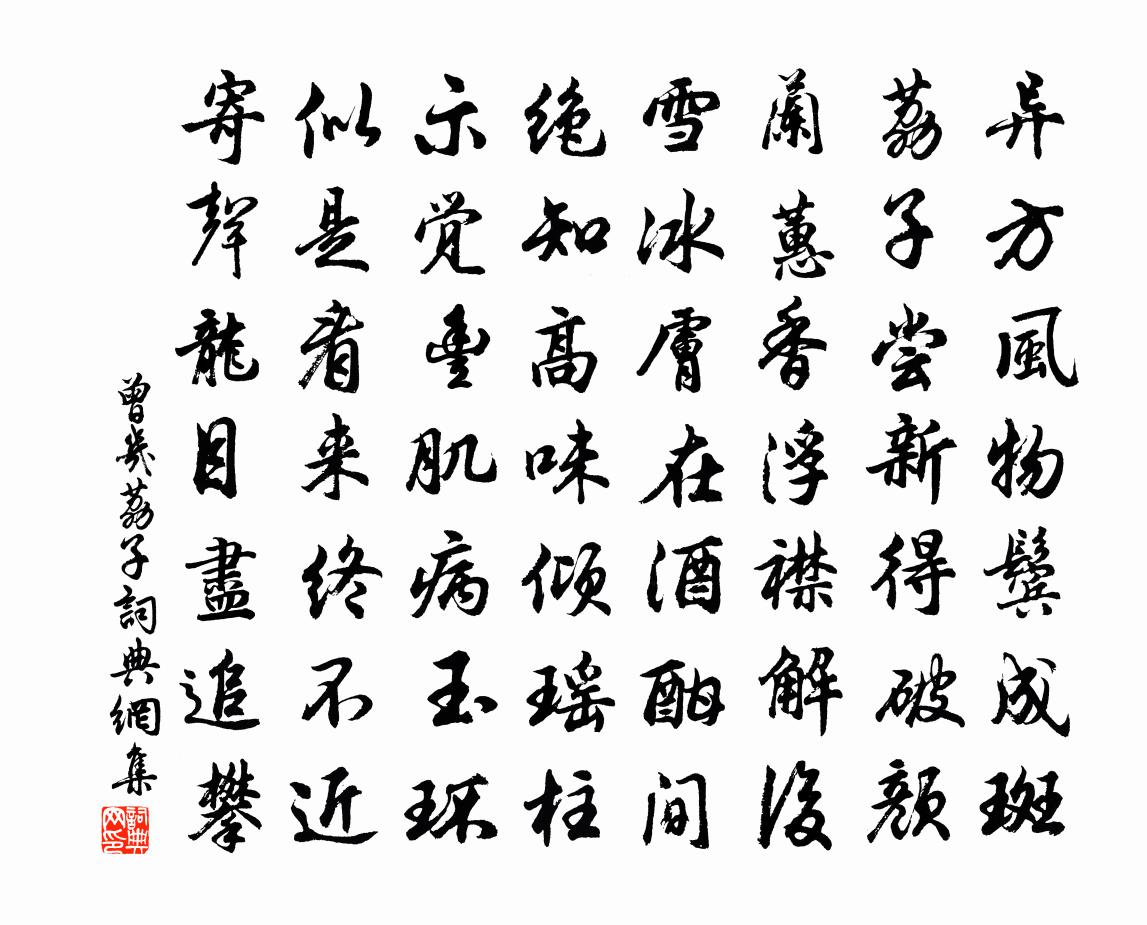 异方風物鬓成斑
荔子尝新得破颜
蘭蕙香浮襟解後
雪冰膚在酒酣间
绝知高味倾瑶柱
示觉豊肌病玉环
似是看来终不近
寄聲龍目盡追攀
曾幾荔子詞典網集